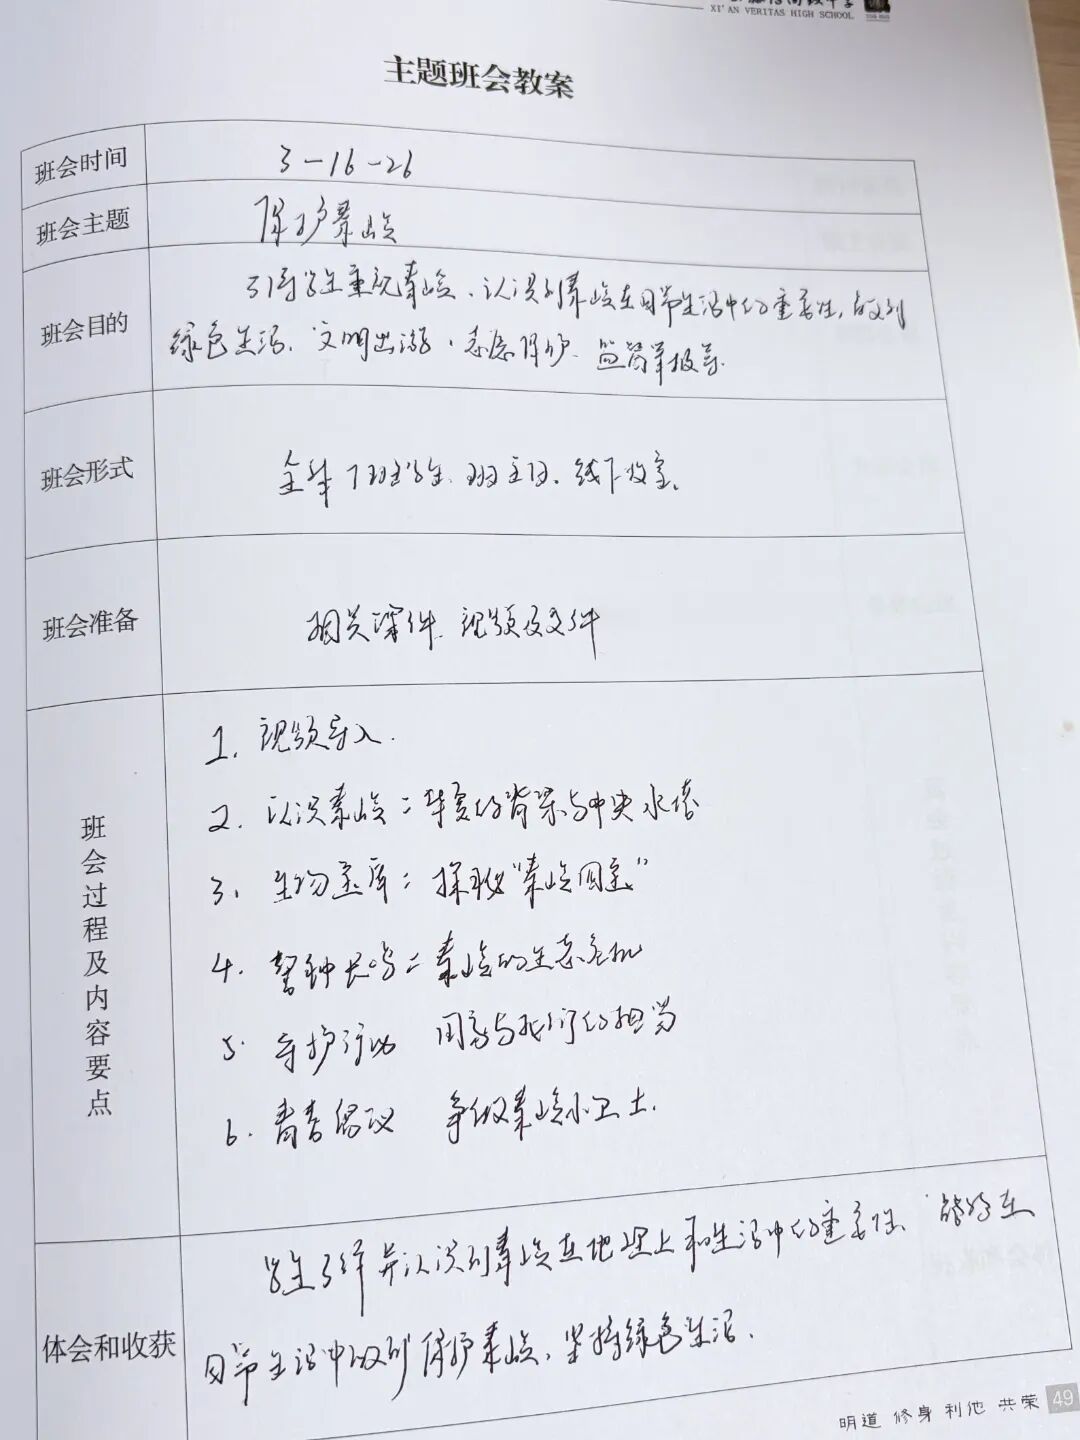 XI'AN VERITAS HIGH SCHOOL
主题班会教案
班会时间
3-16-26
班会主题
保护秦岭
班会目的
引导学生重视秦岭、认识到秦岭在日常生活中的重要性,做到
绿色生活、文明出游、志愿保护、监督举报等.
班会形式
全体 7班学生、班主任、线下教室。
班会准备
相关课件、视频及文件
班会过程及内容要点
1. 视频导入.
2. 认识秦岭:华夏的脊梁与中央水塔
3. 生物宝库:探秘“秦岭四宝”
4. 警钟长鸣:秦岭的生态危机
5. 守护行动 国家与我们的担当
6. 青春倡议 争做秦岭小卫士.
体会和收获
学生了解并认识到秦岭在地理上和生活中的重要性、能够在
日常生活中做到保护秦岭、坚持绿色生活.
明道 修身 利他 共荣 49